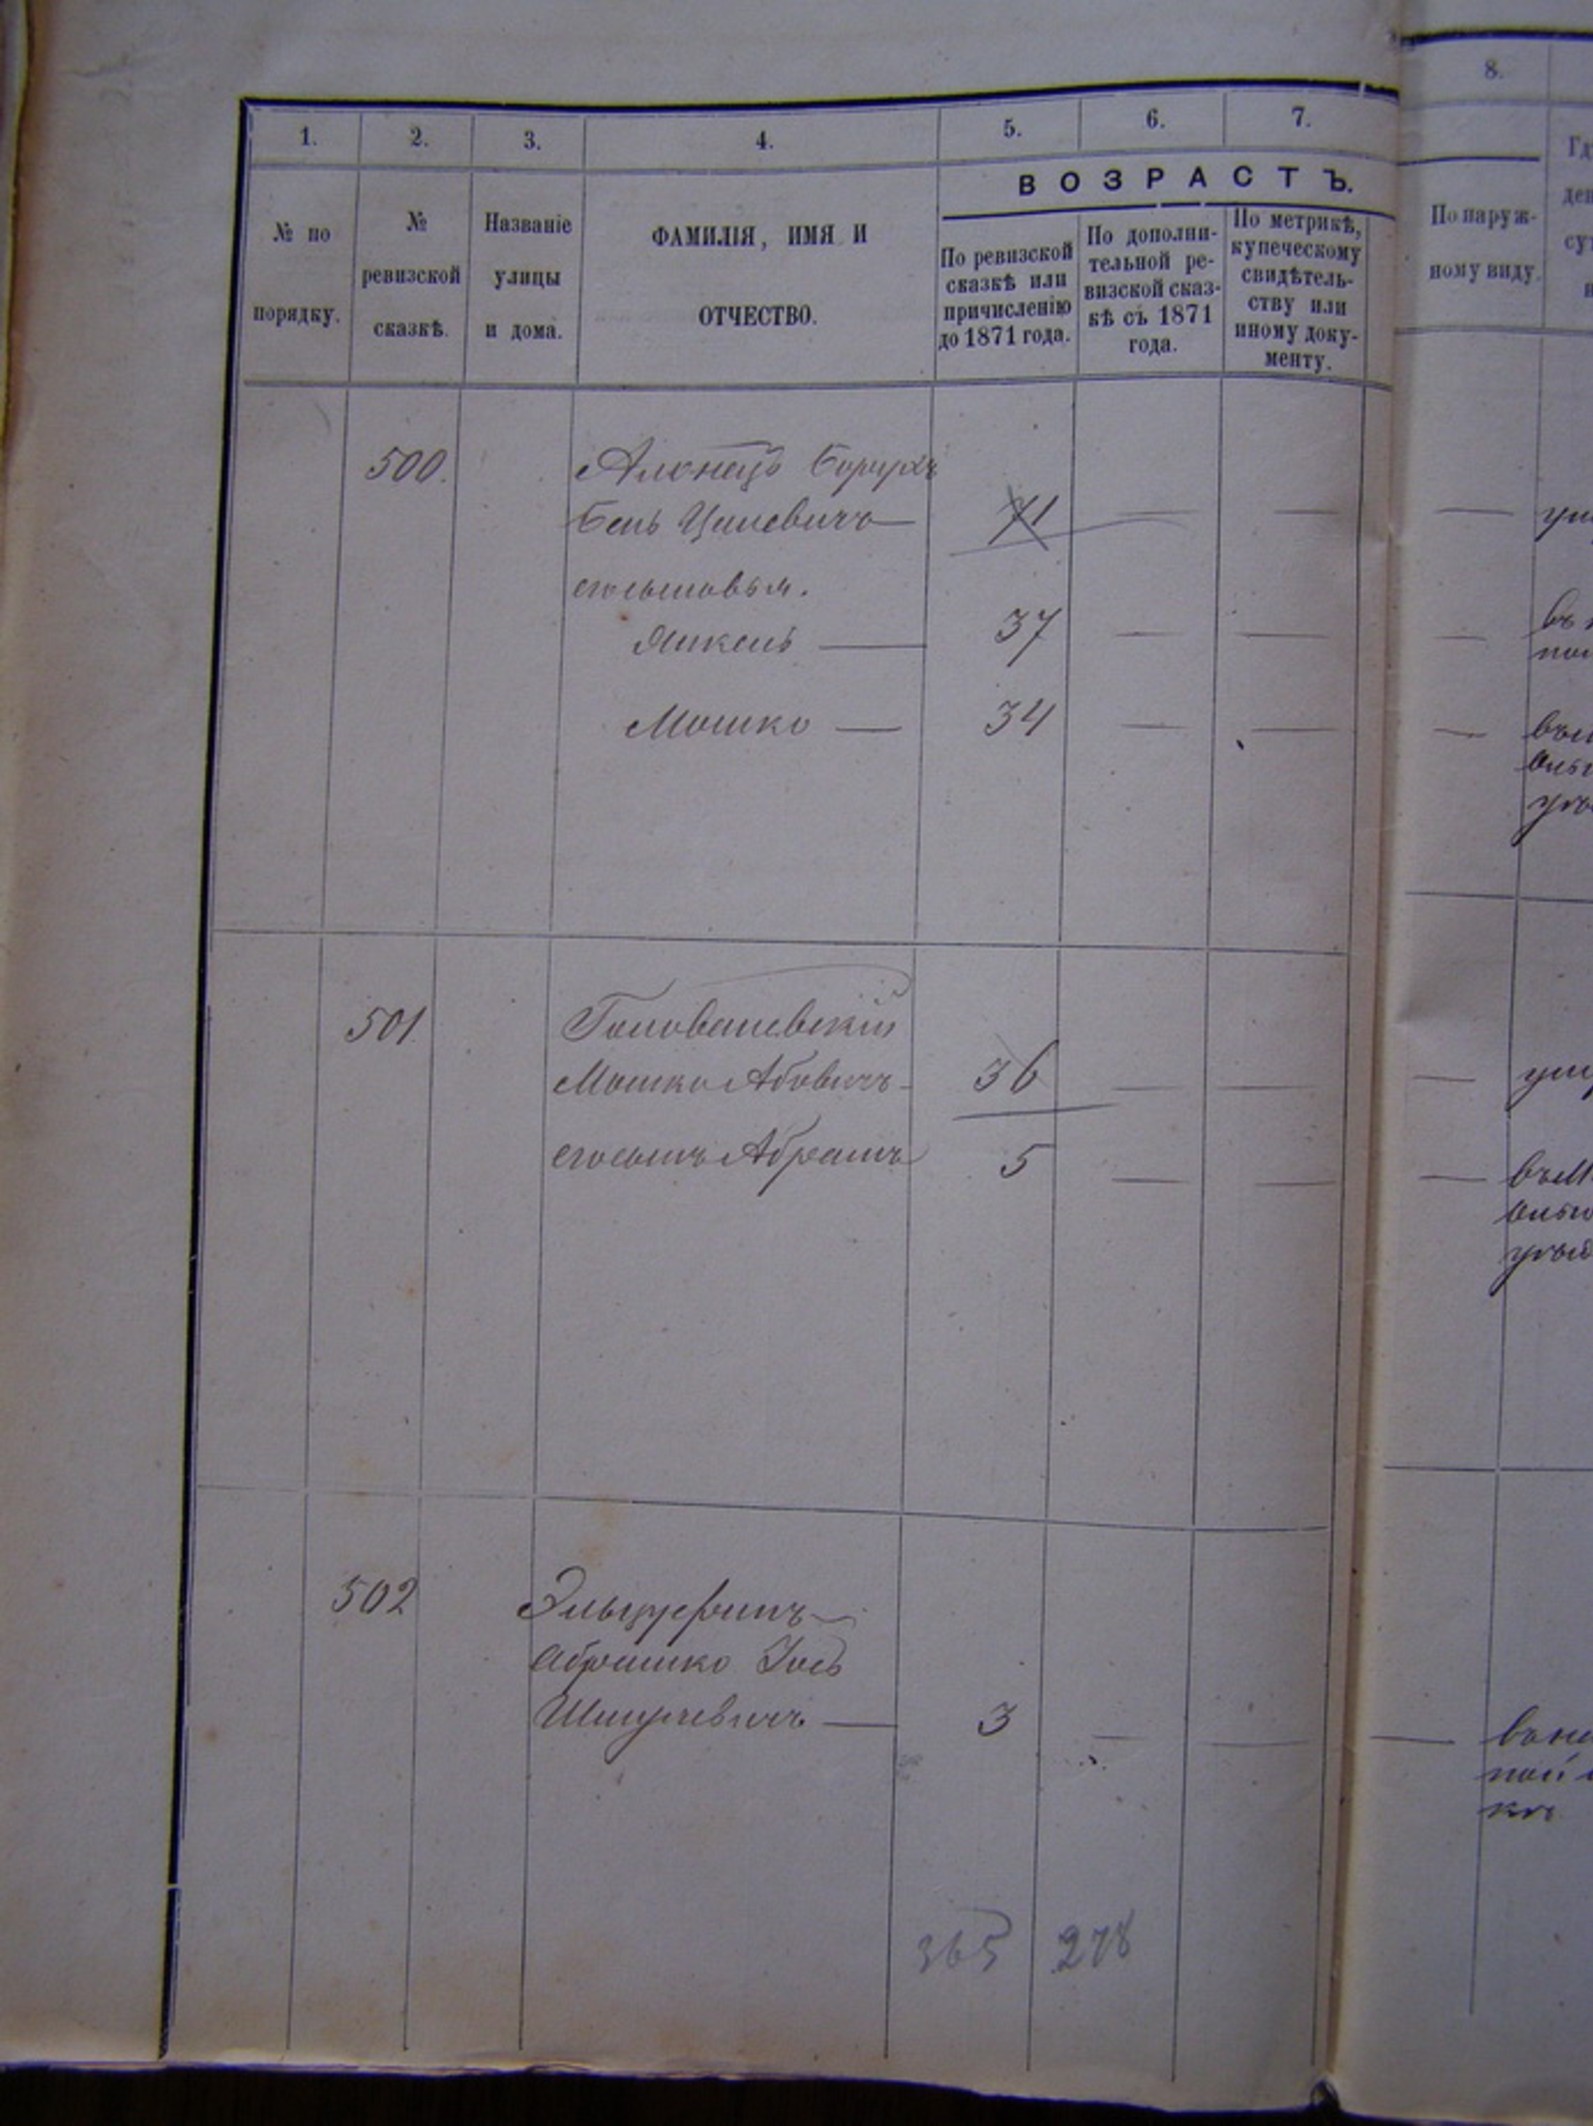 1. 2. 3. 4. 5. 6. 7. 8.
ВОЗРАСТЪ.
№ по
порядку.
№
ревизской
сказкѣ.
Названіе
улицы
и дома.
ФАМИЛІЯ, ИМЯ И
ОТЧЕСТВО.
По ревизской
сказкѣ или
причисленію
до 1871 года.
По дополни-
тельной ре-
визской сказ-
кѣ съ 1871
года.
По метрикѣ,
купеческому
свидѣтель-
ству или
иному доку-
менту.
По наруж-
ному виду.
500. Борухъ
71 — — —
его сыновья.
Янкель — 37 — — —
Мошко — 34 — — —
501 Головашевскій
Мошко Абовичъ 36 — — —
его сынъ Абрамъ 5 — — —
502
Абрашко Іось
Шмулевичъ — 3 — — —
365 278